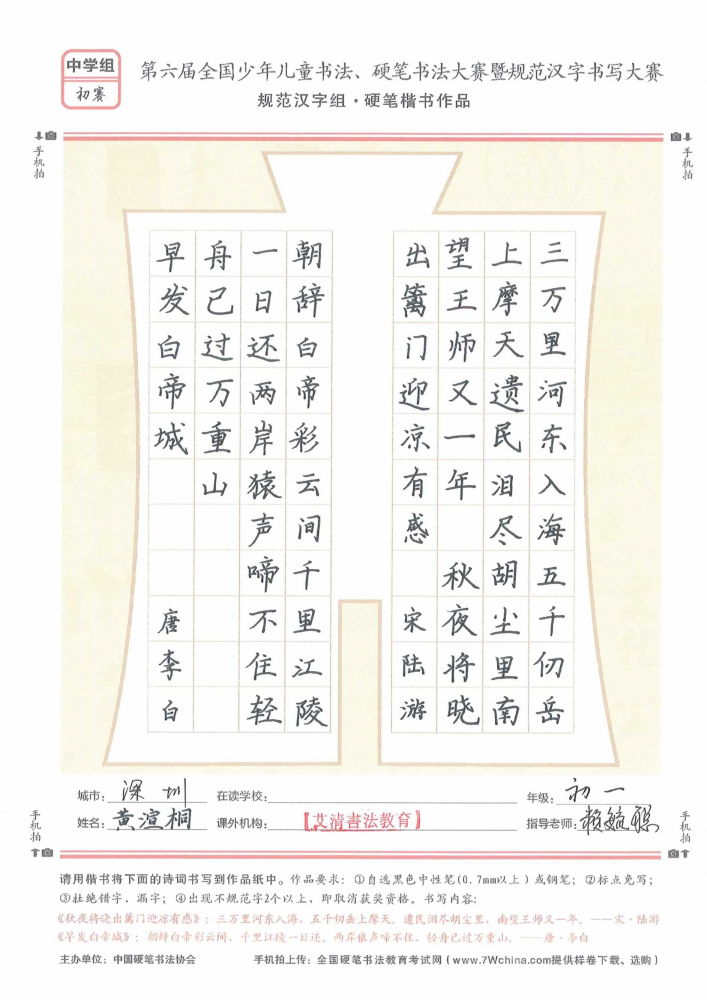 中学组
初赛
第六届全国少年儿童书法、硬笔书法大赛暨规范汉字书写大赛
规范汉字组·硬笔楷书作品
手机拍
手机拍
三万里河东入海五千仞岳
上摩天遗民泪尽胡尘里南
望王师又一年 秋夜将晓
出篱门迎凉有感 宋陆游
朝辞白帝彩云间千里江陵
一日还两岸猿声啼不住轻
舟已过万重山
早发白帝城 唐李白
城市：深圳 在读学校： 年级：初一
姓名：黄渲桐 课外机构：【艾清书法教育】 指导老师：赖毓聪
手机拍
手机拍
请用楷书将下面的诗词书写到作品纸中。作品要求：①自选黑色中性笔(0.7mm以上)或钢笔；②标点免写；
③杜绝错字，漏字；④出现不规范字2个以上，即取消获奖资格。书写内容：
《秋夜将晓出篱门迎凉有感》：三万里河东入海，五千仞岳上摩天。遗民泪尽胡尘里，南望王师又一年。——宋·陆游
《早发白帝城》：朝辞白帝彩云间，千里江陵一日还。两岸猿声啼不住，轻舟已过万重山。——唐·李白
主办单位：中国硬笔书法协会 手机拍上传：全国硬笔书法教育考试网(www.7Wchina.com提供样卷下载、选购)